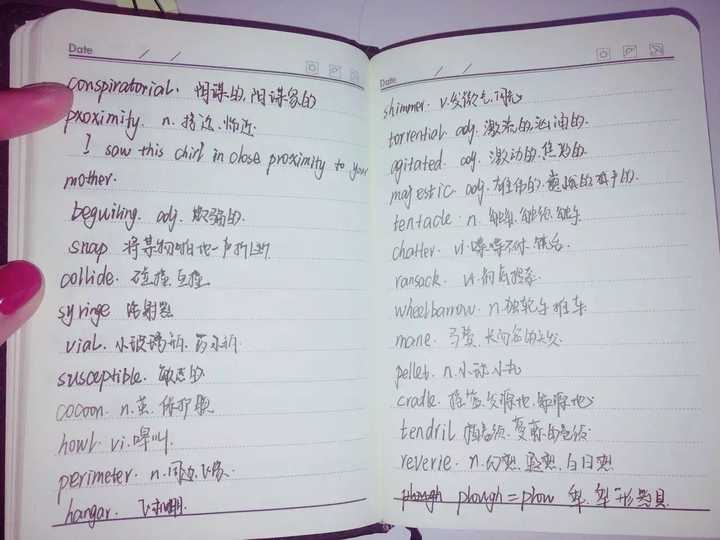 Date
conspiratorial. 阴谋的,阴谋家的
proximity. n. 接近.临近.
I saw this chirl in close proximity to your
mother.
beguiling. adj. 欺骗的.
snap 将某物啪地一声折断
collide. 碰撞.互撞.
syringe 注射器
vial. 小玻璃瓶.药水瓶.
susceptible. 敏感的
cocoon. n.茧.保护
howl. vi.嗥叫.
perimeter. n.周边.
hangar. 飞机棚.
Date
shimmer. v.发微光,闪光
torrential adj. 激流的
agitated. adj. 激动的.焦急的
majestic. adj. 雄伟的.
tentacle. n.
chatter. vi.喋喋不休.
ransack. vt.彻底搜索.
wheelbarrow. n.独轮手推车
mane. 马鬃.
pellet. n.小球.小丸
cradle. 摇篮.发源地.
tendril
reverie. n.幻想.白日梦
plough plough = plow 犁.犁形器具.